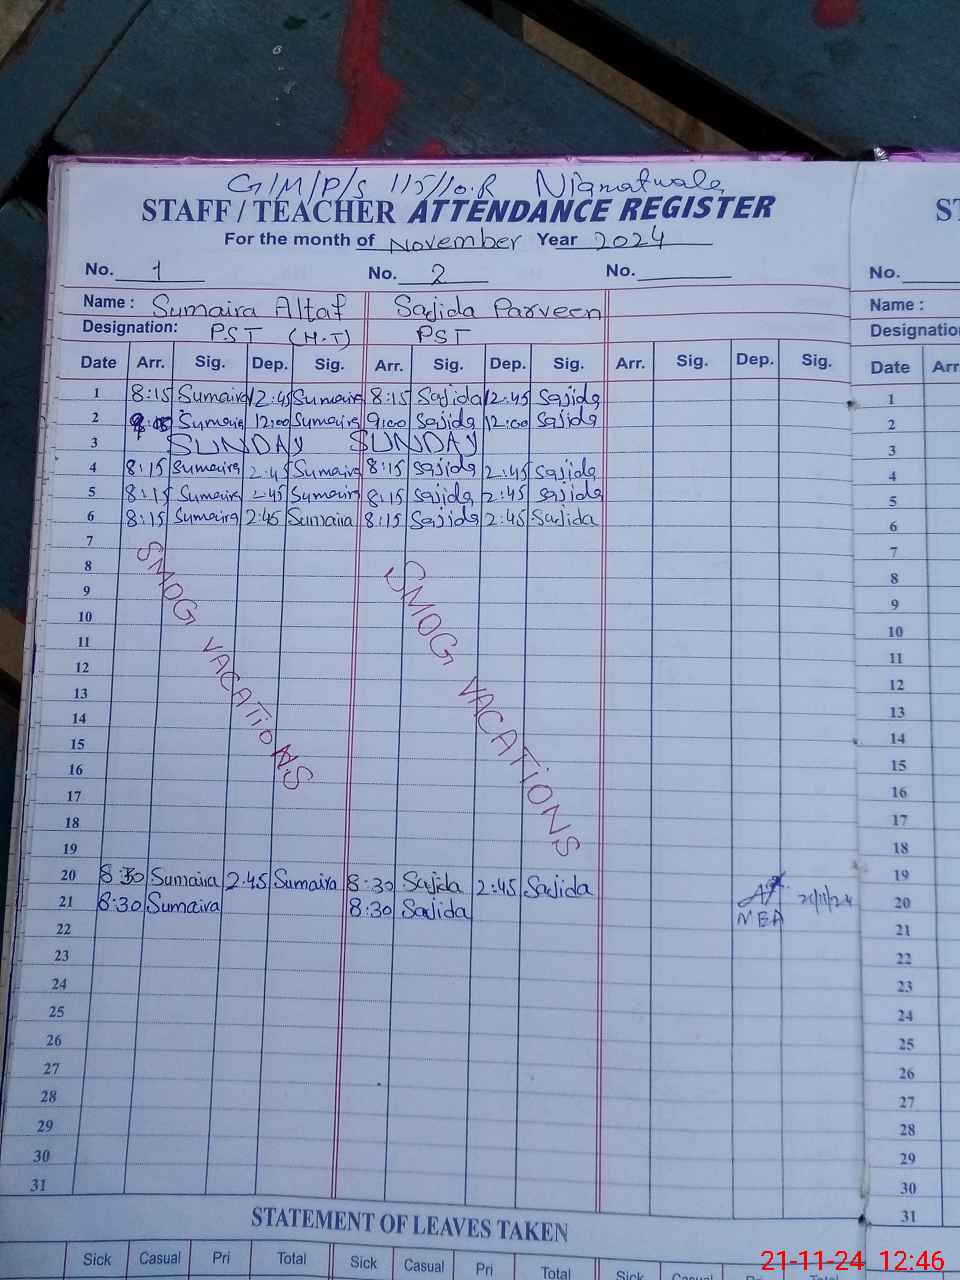 G/M/P/S 115/10.R Niamatwala
STAFF / TEACHER ATTENDANCE REGISTER
For the month of November Year 2024
No. 1 No. 2 No.
Name : Sumaira Altaf Sajida Parveen
Designation: PST (H.T) PST
Date Arr. Sig. Dep. Sig. Arr. Sig. Dep. Sig. Arr. Sig. Dep. Sig.
1 8:15 Sumaira 12:45 Sumaira 8:15 Sajida 12:45 Sajida
2 Sumaira 12:00 Sumaira 9:00 Sajida 12:00 Sajida
3 SUNDAY SUNDAY
4 8:15 Sumaira 2:45 Sumaira 8:15 Sajida 2:45 Sajida
5 8:15 Sumaira 2:45 Sumaira 8:15 Sajida 2:45 Sajida
6 8:15 Sumaira 2:45 Sumaira 8:15 Sajida 2:45 Sajida
7
8
9
10
11
12
13
14
15
16
17
18
19
SMOG VACATIONS SMOG VACATIONS
20 8:30 Sumaira 2:45 Sumaira 8:30 Sajida 2:45 Sajida
21 8:30 Sumaira 8:30 Sajida
MEA 21/11/24
22
23
24
25
26
27
28
29
30
31
STATEMENT OF LEAVES TAKEN
Sick Casual Pri Total Sick Casual Pri Total Sick Casual Pri Total
ST
No.
Name :
Designatio
Date Arr
1
2
3
4
5
6
7
8
9
10
11
12
13
14
15
16
17
18
19
20
21
22
23
24
25
26
27
28
29
30
31
21-11-24 12:46